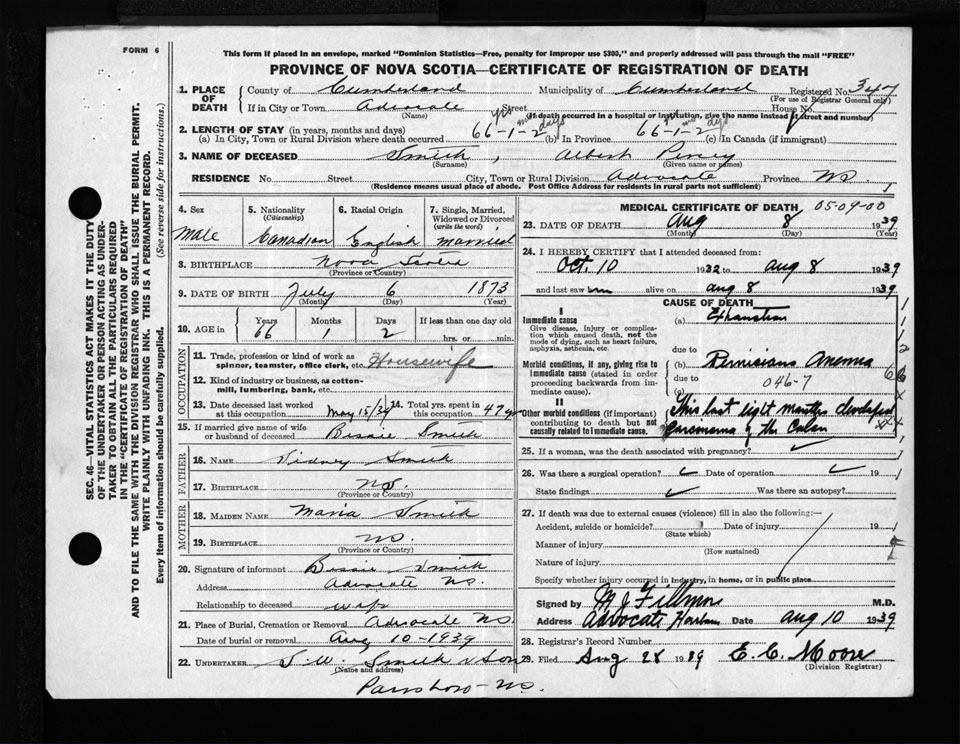 FORM 6
This form if placed in an envelope, marked "Dominion Statistics—Free, penalty for improper use $300," and properly addressed will pass through the mail "FREE"
PROVINCE OF NOVA SCOTIA—CERTIFICATE OF REGISTRATION OF DEATH
1. PLACE OF DEATH County of Cumberland Municipality of Cumberland Registered No. 347
(For use of Registrar General only)
If in City or Town Advocate Street House No.
(Name) (If death occurred in a hospital or institution, give the name instead of street and number)
2. LENGTH OF STAY (in years, months and days)
(a) In City, Town or Rural Division where death occurred 66-1-2 days (b) In Province 66-1-2 days (c) In Canada (if immigrant)
3. NAME OF DECEASED Smith, Albert Percy
(Surname) (Given name or names)
RESIDENCE No. Street City, Town or Rural Division Advocate Province NS.
(Residence means usual place of abode. Post Office Address for residents in rural parts not sufficient)
4. Sex Male
5. Nationality (Citizenship) Canadian
6. Racial Origin English
7. Single, Married, Widowed or Divorced (write the word) married
8. BIRTHPLACE Nova Scotia
(Province or Country)
9. DATE OF BIRTH July 6 1873
(Month) (Day) (Year)
10. AGE in Years Months Days If less than one day old
66 1 2 hrs. or min.
OCCUPATION
11. Trade, profession or kind of work as spinner, teamster, office clerk, etc. Housewife
12. Kind of industry or business, as cotton-mill, lumbering, bank, etc.
13. Date deceased last worked at this occupation May 15/39 14. Total yrs. spent in this occupation 47 yrs
15. If married give name of wife or husband of deceased Bessie Smith
FATHER
16. NAME Sidney Smith
17. BIRTHPLACE NS.
(Province or Country)
MOTHER
18. MAIDEN NAME Maria Smith
19. BIRTHPLACE NS.
(Province or Country)
20. Signature of informant Bessie Smith
Address Advocate NS.
Relationship to deceased wife
21. Place of Burial, Cremation or Removal Advocate NS
Date of burial or removal Aug 10-1939
22. UNDERTAKER S. W. Smith & Son
(Name and address)
Parrsboro-NS.
MEDICAL CERTIFICATE OF DEATH 05-09-00
23. DATE OF DEATH Aug 8 1939
(Month) (Day) (Year)
24. I HEREBY CERTIFY that I attended deceased from:
Oct. 10 1932 to Aug 8 1939
and last saw him alive on Aug 8 1939
CAUSE OF DEATH
I
Immediate cause (a) Exhaustion
Give disease, injury or complication which caused death, not the mode of dying, such as heart failure, asphyxia, asthenia, etc.
due to
Morbid conditions, if any, giving rise to immediate cause (stated in order proceeding backwards from immediate cause).
(b) Pernicious Anemia
due to 046-7
(c)
II
Other morbid conditions (if important) contributing to death but not causally related to immediate cause.
This last eight months developed
Carcinoma of the Colon
25. If a woman, was the death associated with pregnancy?
26. Was there a surgical operation? Date of operation 19
State findings Was there an autopsy?
27. If death was due to external causes (violence) fill in also the following:—
Accident, suicide or homicide? Date of injury 19
(State which)
Manner of injury
(How sustained)
Nature of injury
Specify whether injury occurred in industry, in home, or in public place
Signed by M J Fillmore M.D.
Address Advocate Harbour Date Aug 10 1939
28. Registrar's Record Number
29. Filed Aug 28 1939 E. C. Moore
(Division Registrar)
SEC. 46—VITAL STATISTICS ACT MAKES IT THE DUTY
OF THE UNDERTAKER OR PERSON ACTING AS UNDER-
TAKER TO OBTAIN ALL THE PARTICULARS REQUIRED
IN THE "CERTIFICATE OF REGISTRATION OF DEATH"
AND TO FILE THE SAME WITH THE DIVISION REGISTRAR WHO SHALL ISSUE THE BURIAL PERMIT.
WRITE PLAINLY WITH UNFADING INK. THIS IS A PERMANENT RECORD.
Every item of information should be carefully supplied. (See reverse side for instructions.)